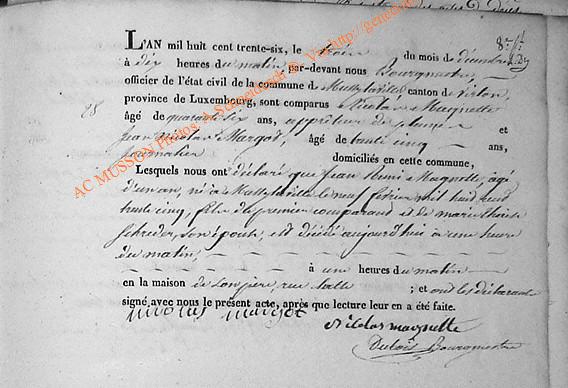 L'AN mil huit cent trente-six, le trois du mois de décembre
à dix heures du matin, par-devant nous Bourgmestre,
officier de l'état civil de la commune de Mussy-la-ville canton de virton,
province de Luxembourg, sont comparus Nicolas Magnette
28
âgé de quarante six ans, et
Jean Nicolas Margot, âgé de trente cinq ans,
journalier domiciliés en cette commune,
Lesquels nous ont déclaré que Jean Magnette, agé
d'un an, né à Mussy-la-ville le neuf février mil huit cent
trente cinq, fils du premier comparant et de marie
son épouse, est décédé aujourd'hui à une heure
du matin,
à une heures du matin
en la maison de son père, rue ; et ont les déclarants
signé avec nous le présent acte, après que lecture leur en a été faite.
nicolas margot
Nicolas magnette
Bourgmestre
AC MUSSON Photos: A. Schneidesch ©. Via http://geneo